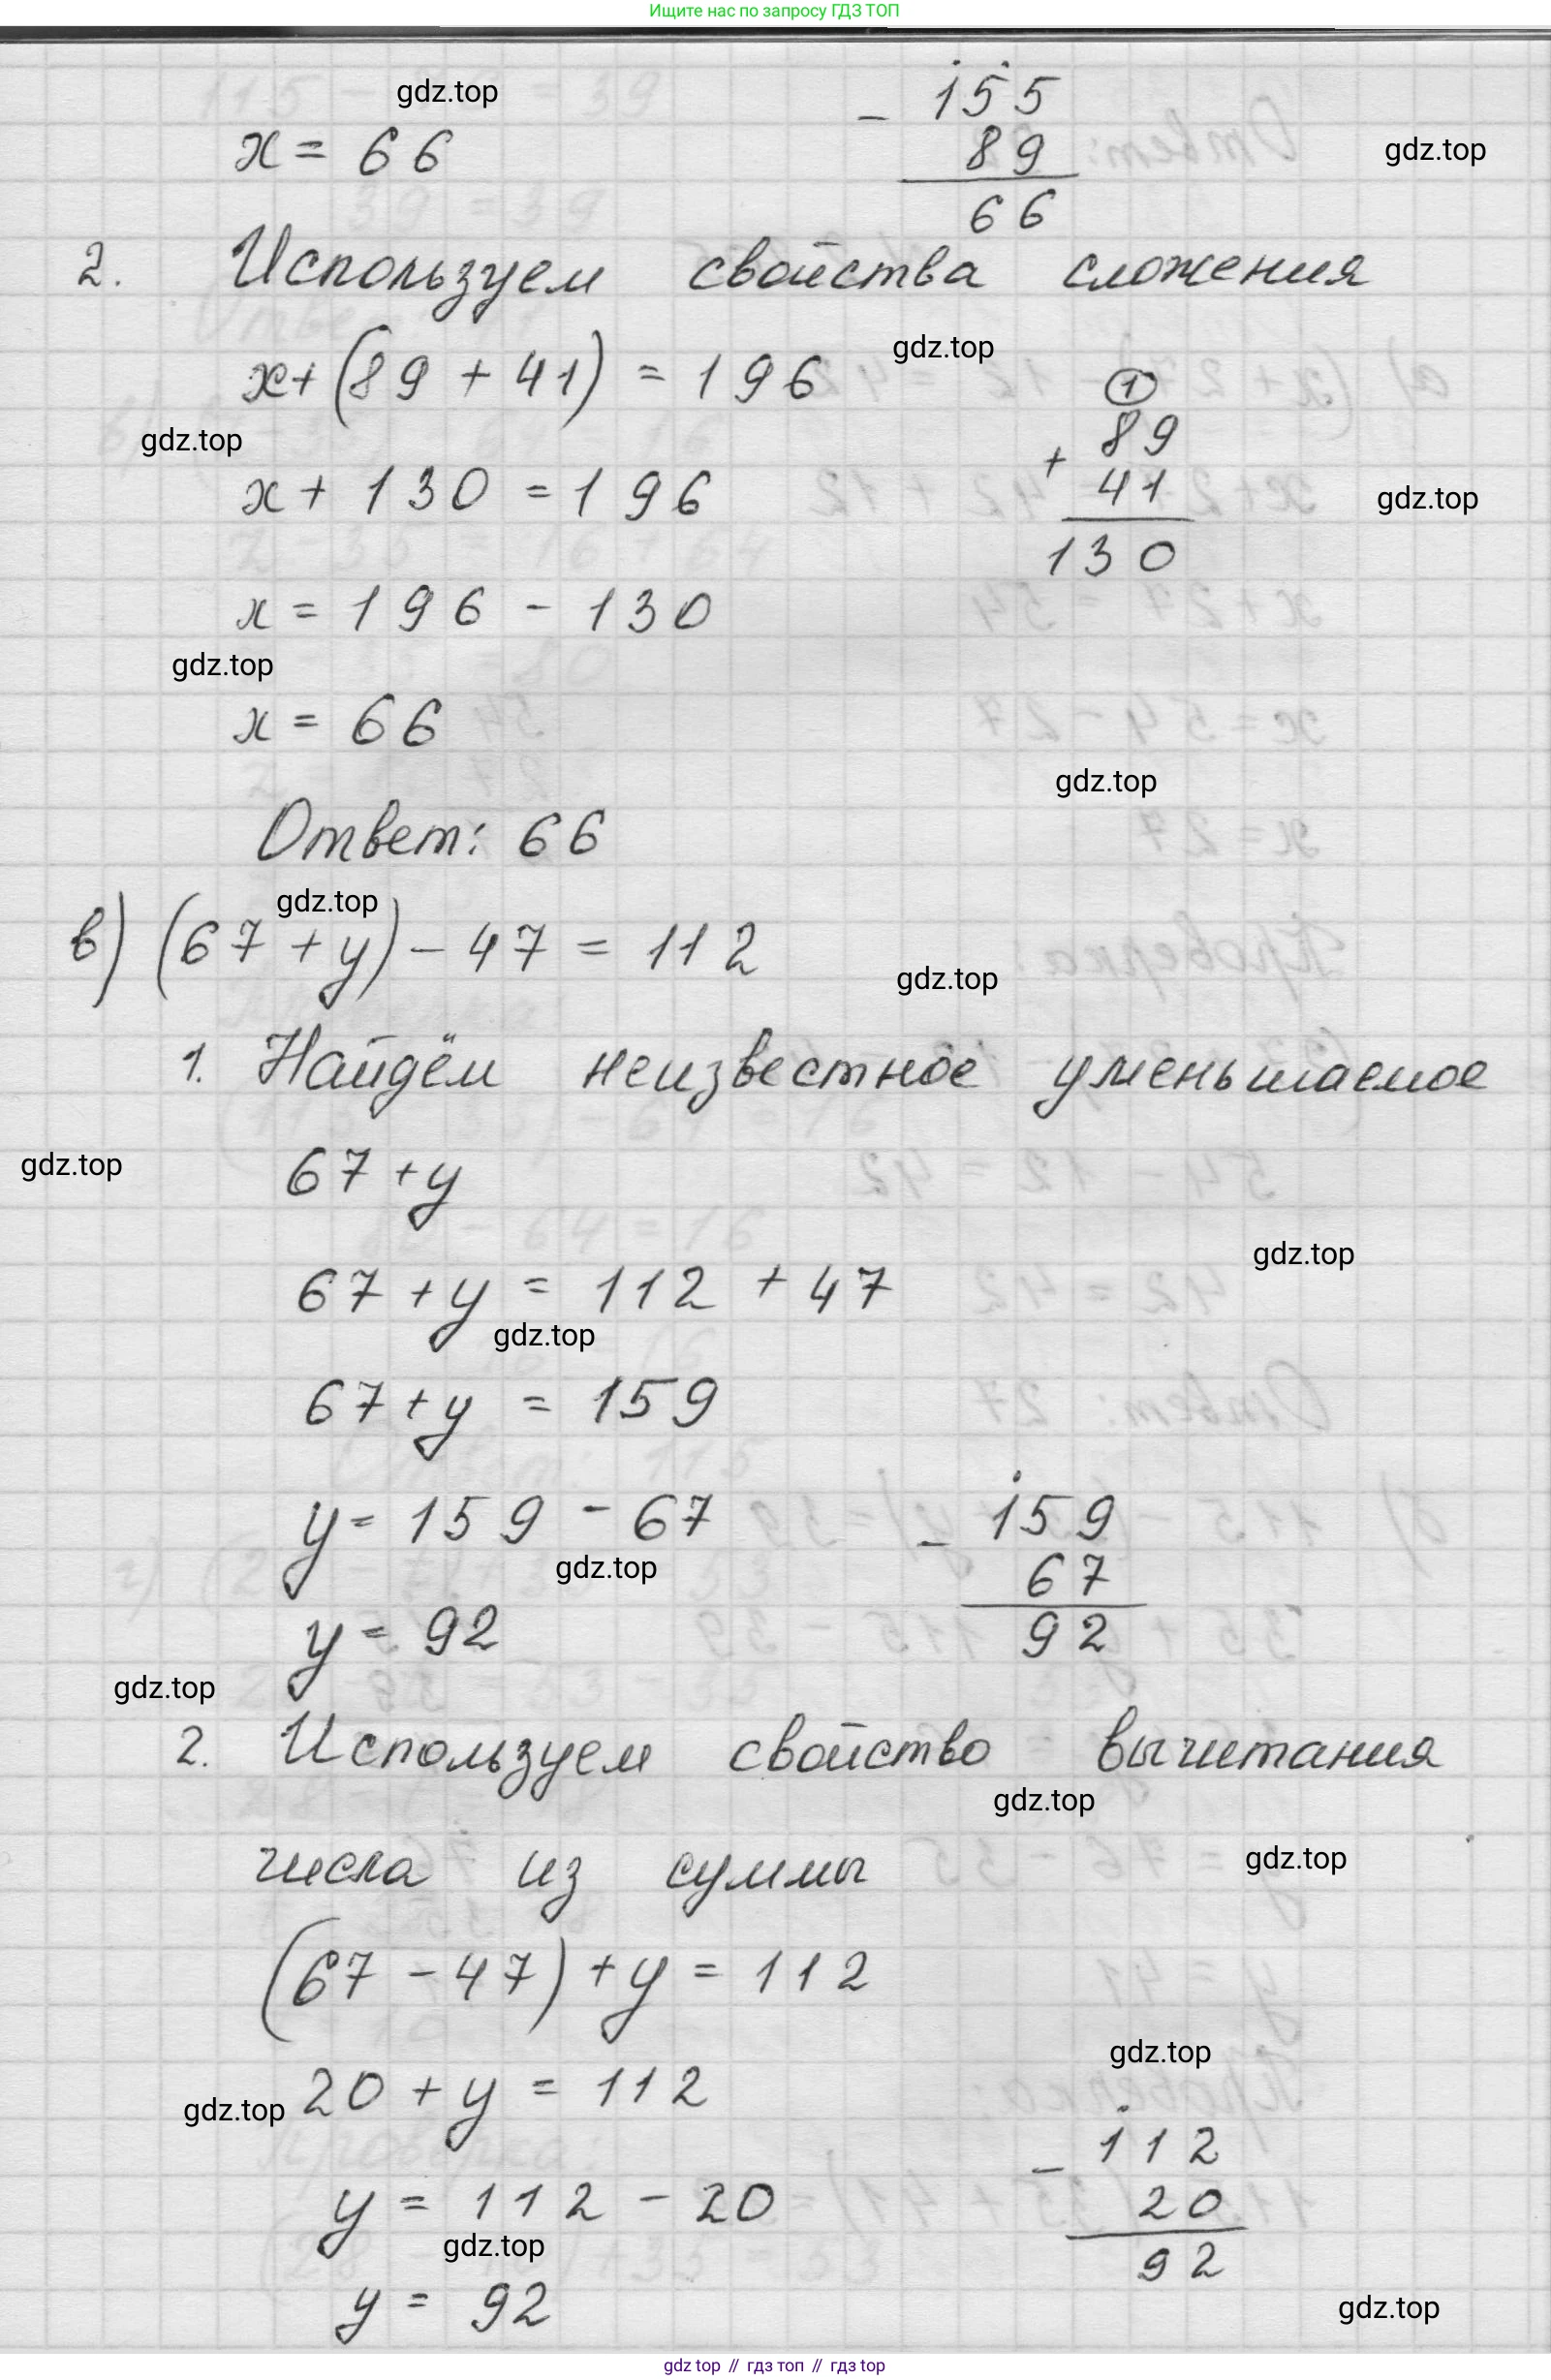 Ищите нас по запросу ГДЗ ТОП
gdz.top
x = 66
155
- 89
66
gdz.top
2. Используем свойства сложения
gdz.top
x + (89 + 41) = 196
gdz.top
1
89
+ 41
130
x + 130 = 196
gdz.top
x = 196 - 130
gdz.top
x = 66
gdz.top
Ответ: 66
gdz.top
в) (67 + y) - 47 = 112
gdz.top
1. Найдём неизвестное уменьшаемое
gdz.top
67 + y
gdz.top
67 + y = 112 + 47
gdz.top
67 + y = 159
y = 159 - 67
159
- 67
92
gdz.top
y = 92
gdz.top
2. Используем свойство вычитания
gdz.top
числа из суммы
gdz.top
(67 - 47) + y = 112
gdz.top
20 + y = 112
gdz.top
y = 112 - 20
112
- 20
92
gdz.top
y = 92
gdz.top
gdz top // гдз топ // gdz top